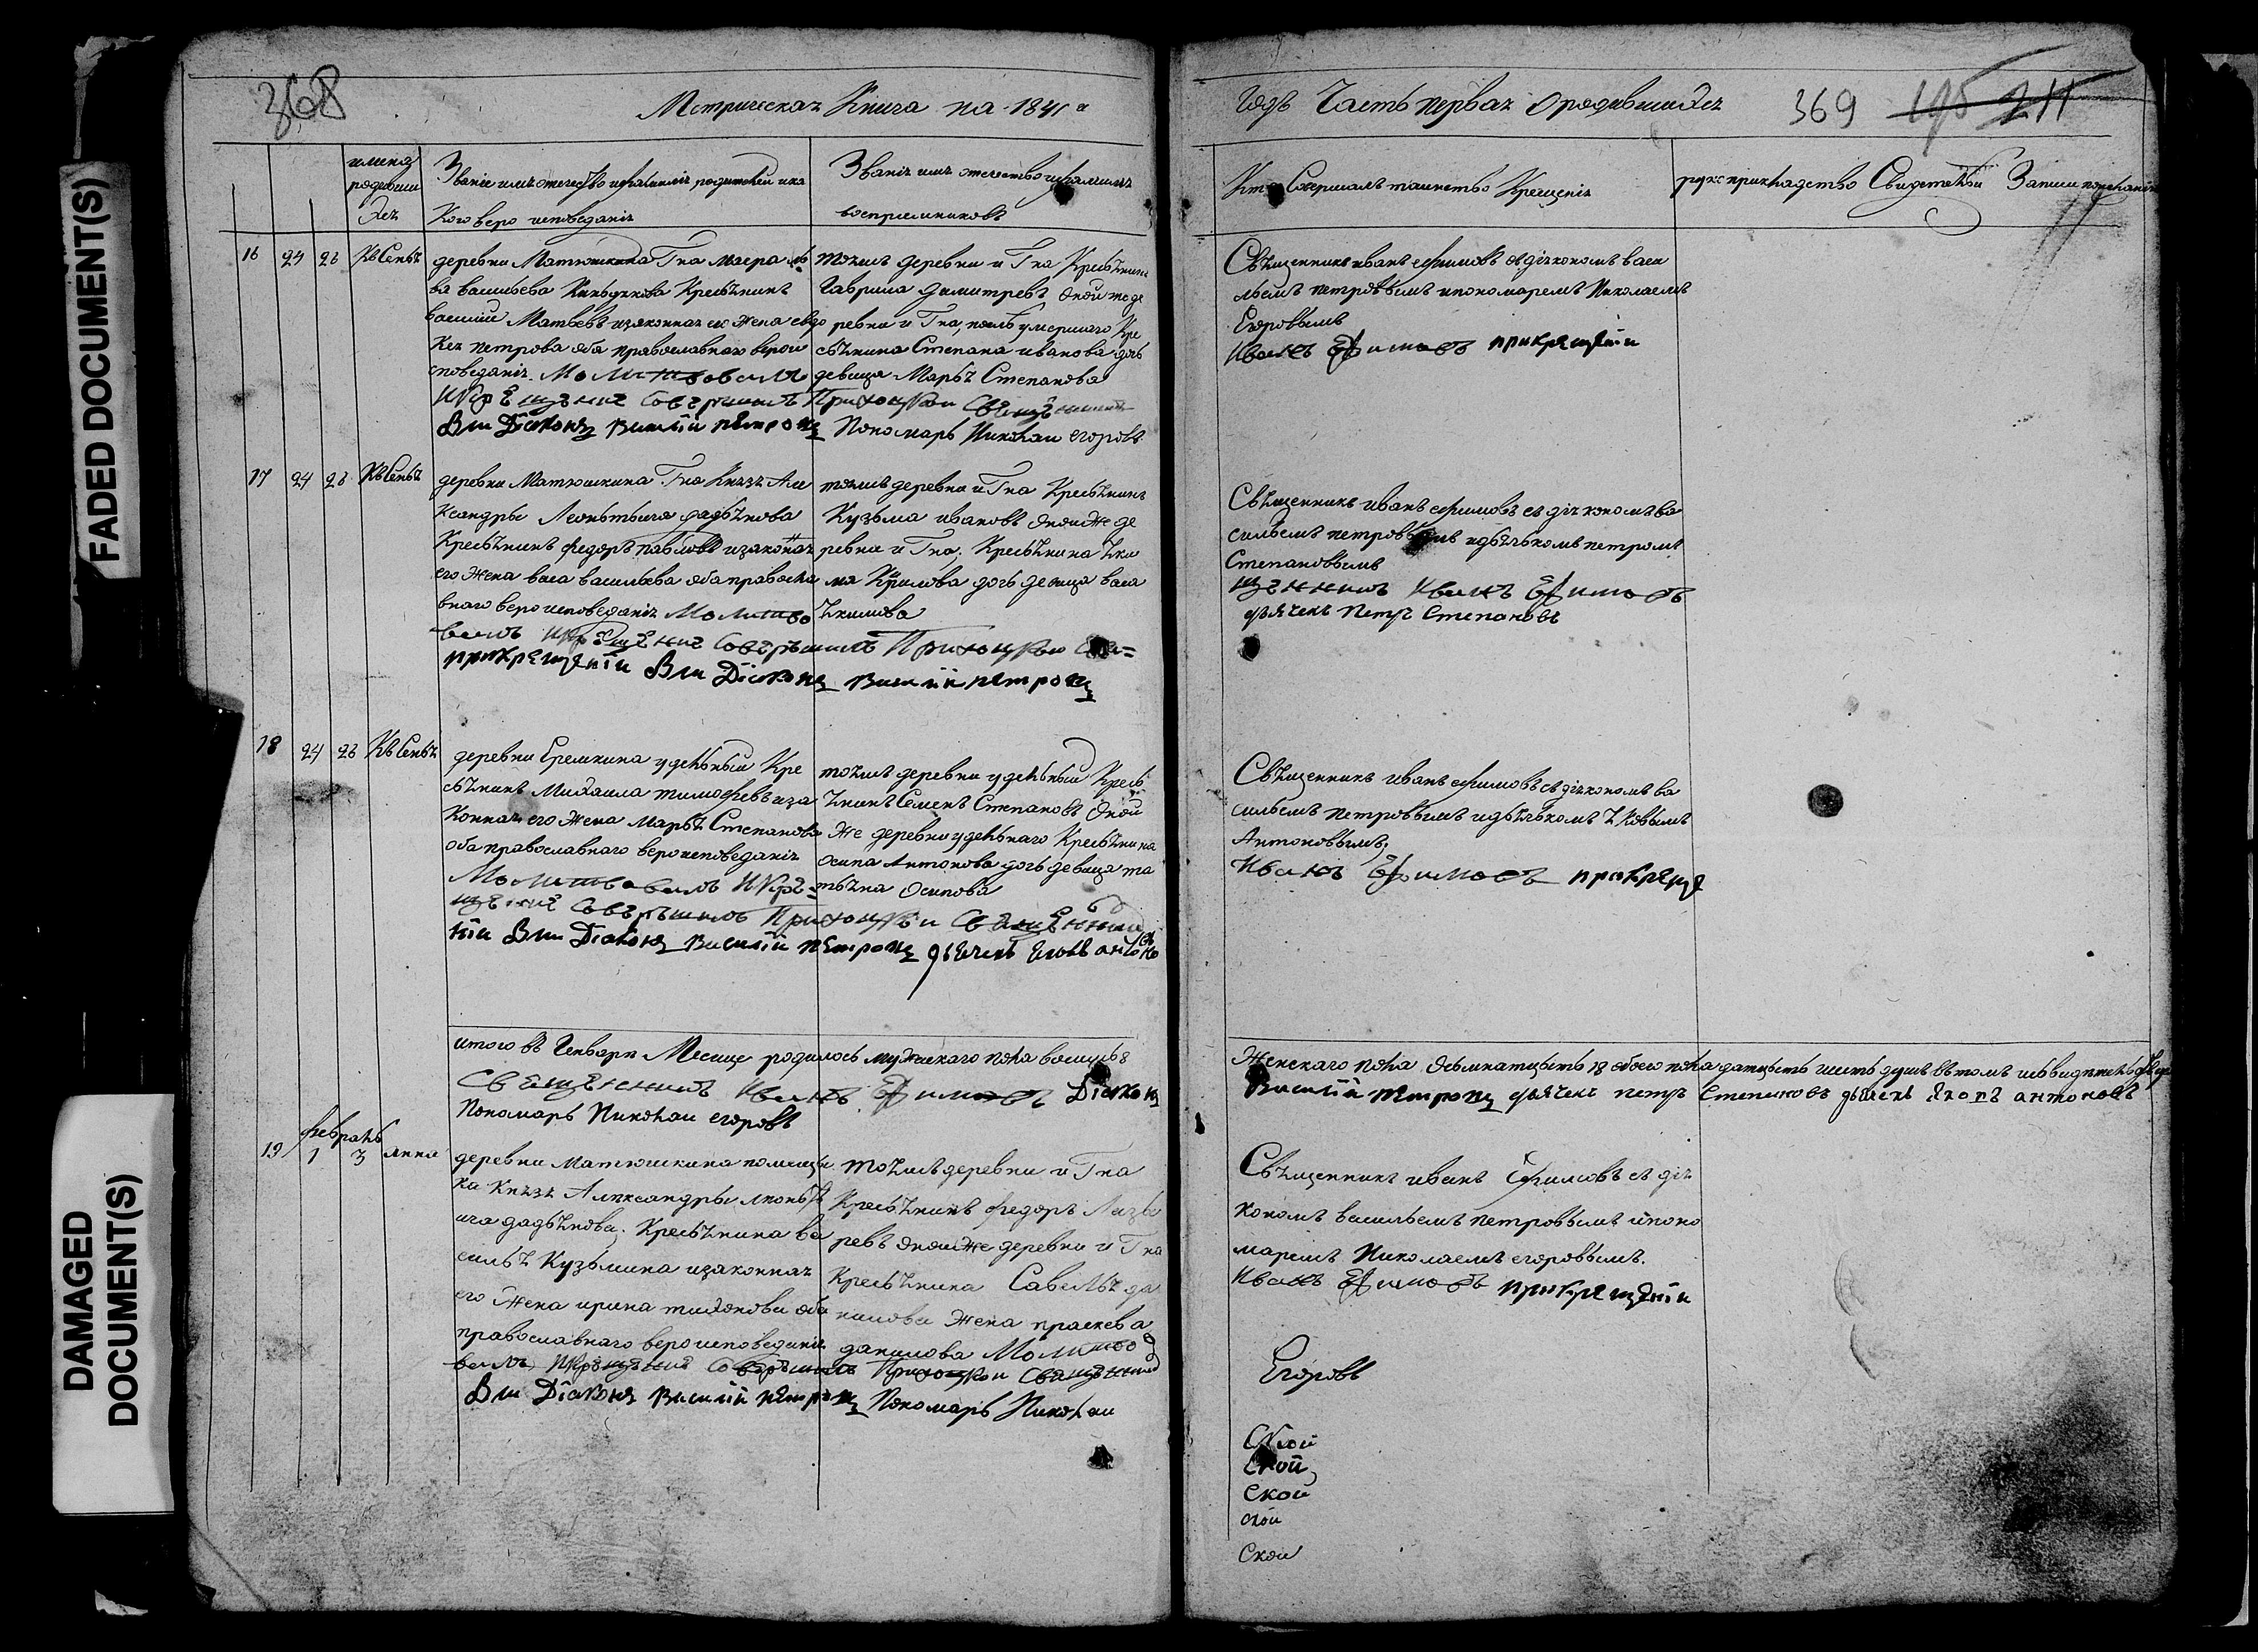 FADED DOCUMENT(S)
DAMAGED
DOCUMENT(S)
368
Метрическая Книга на 1841 а
имена
родивши
хся
Звание имя отечество и фамилия родителей и ка
кого вероисповедания
Звание имя отечество и фамилия
восприемниковъ
16 24 26 Ксения
деревни Матюшкина Гна маера
ва васильева Крестянинъ
василий Матвевъ и законная ее жена евдо
кея петрова оба православнаго веро и
споведания. Молитвовалъ
и крещение совершилъ Приходской Священникъ
Диаконъ Василий Петровъ
тоеже деревни и Гна Крестянинъ
Гаврила Димитревъ Оной же де
ревни и Гна, умершаго Кре
стянина Степана иванова дочь
девица Марья Степанова
Пономарь Николаи егоровъ
17 24 26 Ксения
деревни Матюшкина Гна Князя Але
ксандры Леонтьича дадьянова
Крестянинъ федоръ павловъ и законная
его жена васа васильева оба правосла
внаго вероисповедания Молитво
валъ и крещение совершилъ Приходской
при крещении Диаконъ Василий Петровъ
тоеже деревни и Гна Крестянинъ
Кузьма ивановъ Оной же де
ревни и Гна. Крестянина яки
ма Крилова дочь девица васа
Якимова
18 24 26 Ксения
деревни Еремкина удельный Кре
стянинъ Михаила тимофевъ и за
конная его жена марья Степанова
оба православнаго вероисповедания
Молитвовалъ и кре
щение совершилъ Приходской Священникъ
нии Диаконъ Василий Петровъ дьячекъ антоно
тоеже деревни удельный Крест
янинъ Семенъ Степановъ Оной
же деревни удельнаго Крестянина
осипа Антонова дочь девица та
тьяна Осипова
итого въ Генваре Месяце родилось мужескаго пола восемь 8
Священникъ Иванъ Ефимовъ Диаконъ
Пономарь Николаи егоровъ
февраль
19 1 3 Анна
деревни Матюшкина помещи
ка Князя Александры леонть
ича дадьянова. Крестянина ва
силья Кузьмина и законная
его жена ирина тихонова оба
православнаго вероисповедания
валъ и крещение совершилъ Приходской Священникъ
Диаконъ Василий Петровъ Пономарь Николаи
тоеже деревни и Гна
Крестянинъ федоръ Лаза
ревъ Оной же деревни и Гна
Крестянина Савелья да
нилова жена праскева
данилова Молитво
годъ Часть первая О родившихся
369 195 211
Кто Совершалъ таинство Крещения
рукоприкладство Свидетелей Записи по желанию
Священникъ иванъ ефимовъ съ диякономъ васи
льемъ петровымъ и пономаремъ Николаемъ
Егоровымъ
Иванъ Ефимовъ при крещении
Священникъ иванъ ефимовъ съ диякономъ ва
сильемъ петровымъ и дьячькомъ петромъ
Степановымъ
щенникъ Иванъ Ефимовъ
дьячекъ Петръ Степановъ
Священникъ иванъ ефимовъ съ диякономъ ва
сильемъ петровымъ и дьячькомъ Яковымъ
Антоновымъ
Иванъ Ефимовъ при креще
Женскаго пола осьмнатцать 18 обоего пола дватцать шесть душъ въ томъ и свидетельствуемъ
Василий Петровъ дьячекъ петръ Степановъ дьячекъ Яковъ антоновъ
Священникъ иванъ Ефимовъ съ дия
кономъ васильемъ петровымъ и поно
маремъ Николаемъ егоровымъ.
Иванъ Ефимовъ при крещении
Егоровъ
Ской
Ской
Ской
Ской
Ской